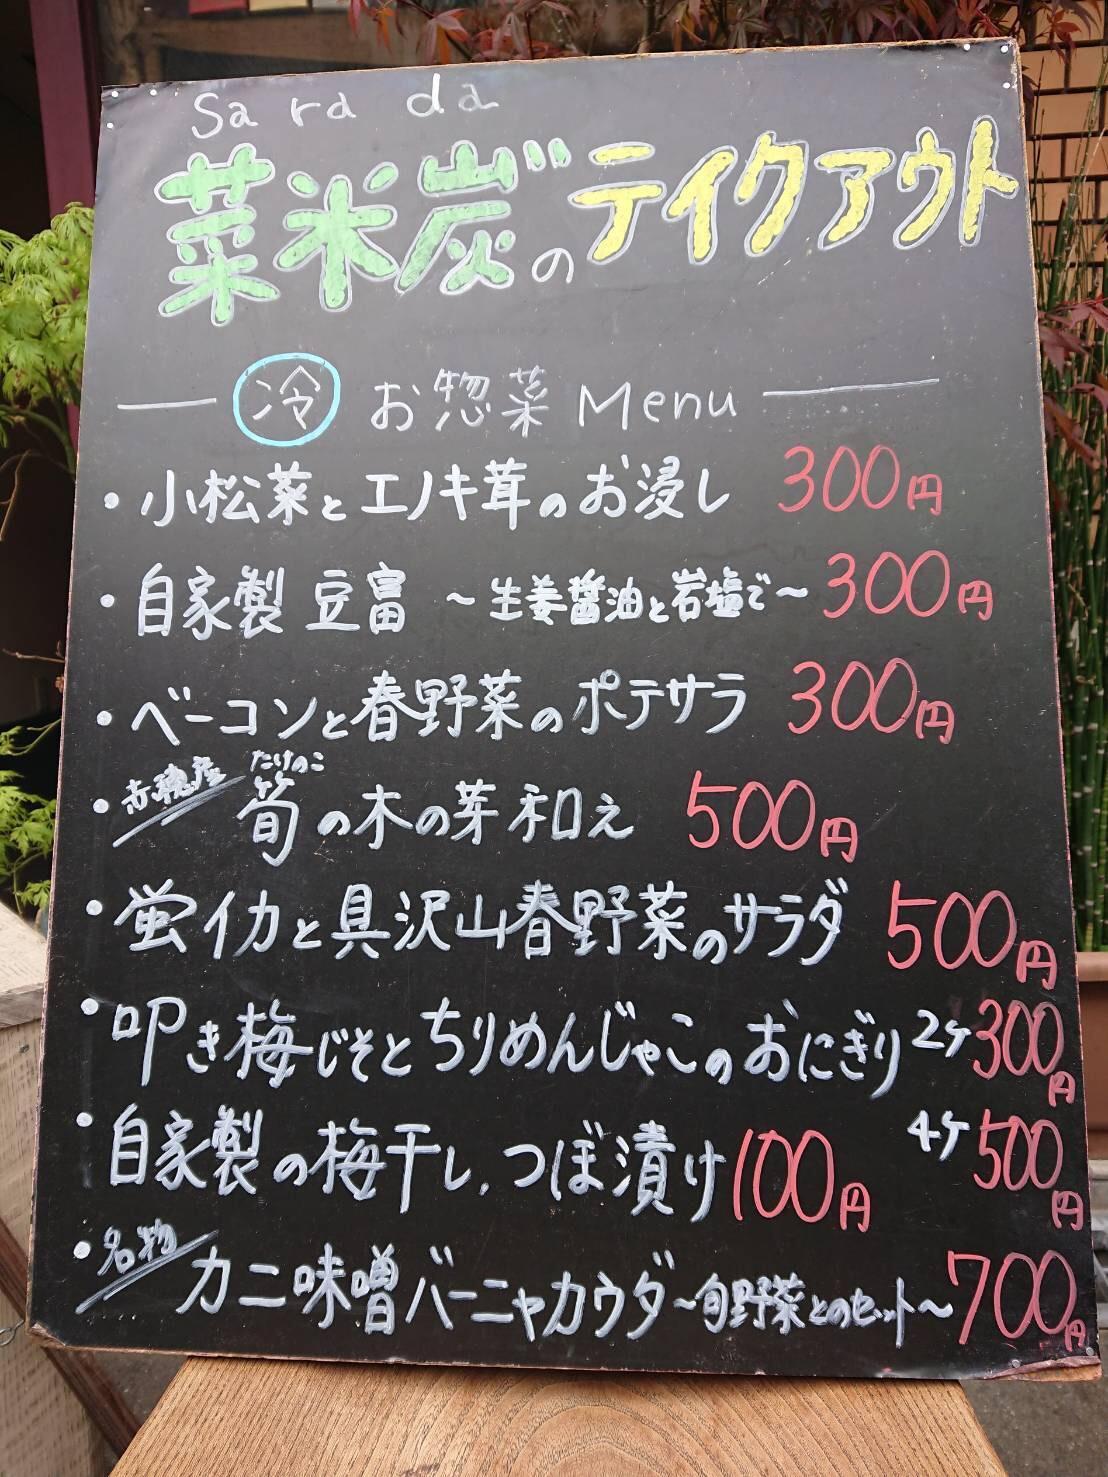 Sa ra da
菜米炭゛のテイクアウト
冷 お惣菜 Menu
・小松菜とエノキ茸のお浸し 300円
・自家製 豆富 〜生姜醤油と岩塩で〜 300円
・ベーコンと春野菜のポテサラ 300円
たけのこ
・赤穂産 筍の木の芽和え 500円
・蛍イカと具沢山春野菜のサラダ 500円
・叩き梅じそとちりめんじゃこのおにぎり 2ケ 300円
4ケ 500円
・自家製の梅干し、つぼ漬け 100円
・名物 カニ味噌バーニャカウダ〜旬野菜とのセット〜 700円